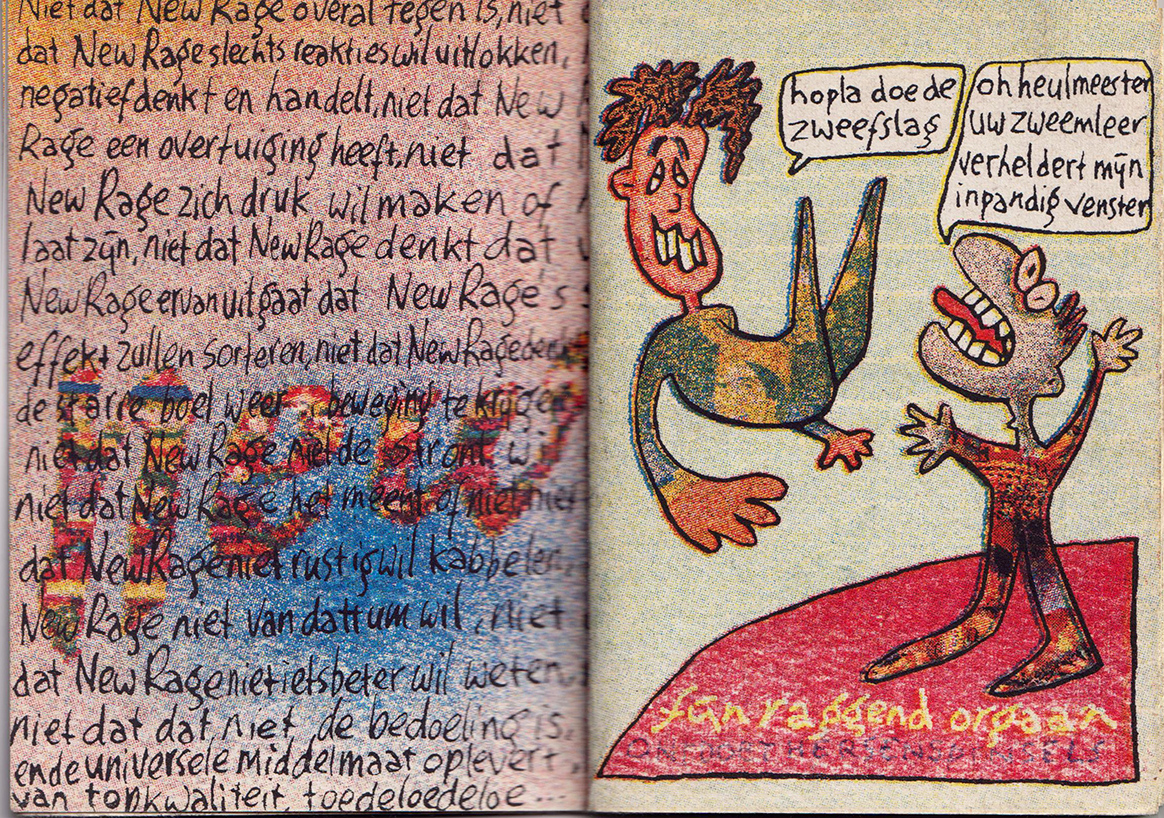 Niet dat New Rage overal tegen is, niet
dat New Rage slechts reakties wil uitlokken,
negatief denkt en handelt, niet dat New
Rage een overtuiging heeft, niet dat
New Rage zich druk wil maken of
laat zijn, niet dat New Rage denkt dat
New Rage ervan uitgaat dat New Rage's
effekt zullen sorteren, niet dat New Rage
de starre boel weer beweging te krijgen
niet dat New Rage niet de stront
niet dat New Rage het meent of niet niet
dat New Rage niet rustig wil kabbelen,
New Rage niet van dattum wil, niet
dat New Rage niet iets beter wil weten
niet dat dat niet de bedoeling is,
en de universele middelmaat oplevert,
van tonkwaliteit, toedeloedeloe...
hopla doe de
zweefslag
oh heulmeester
uw zweemleer
verheldert mijn
inpandig venster
fijn raggend orgaan